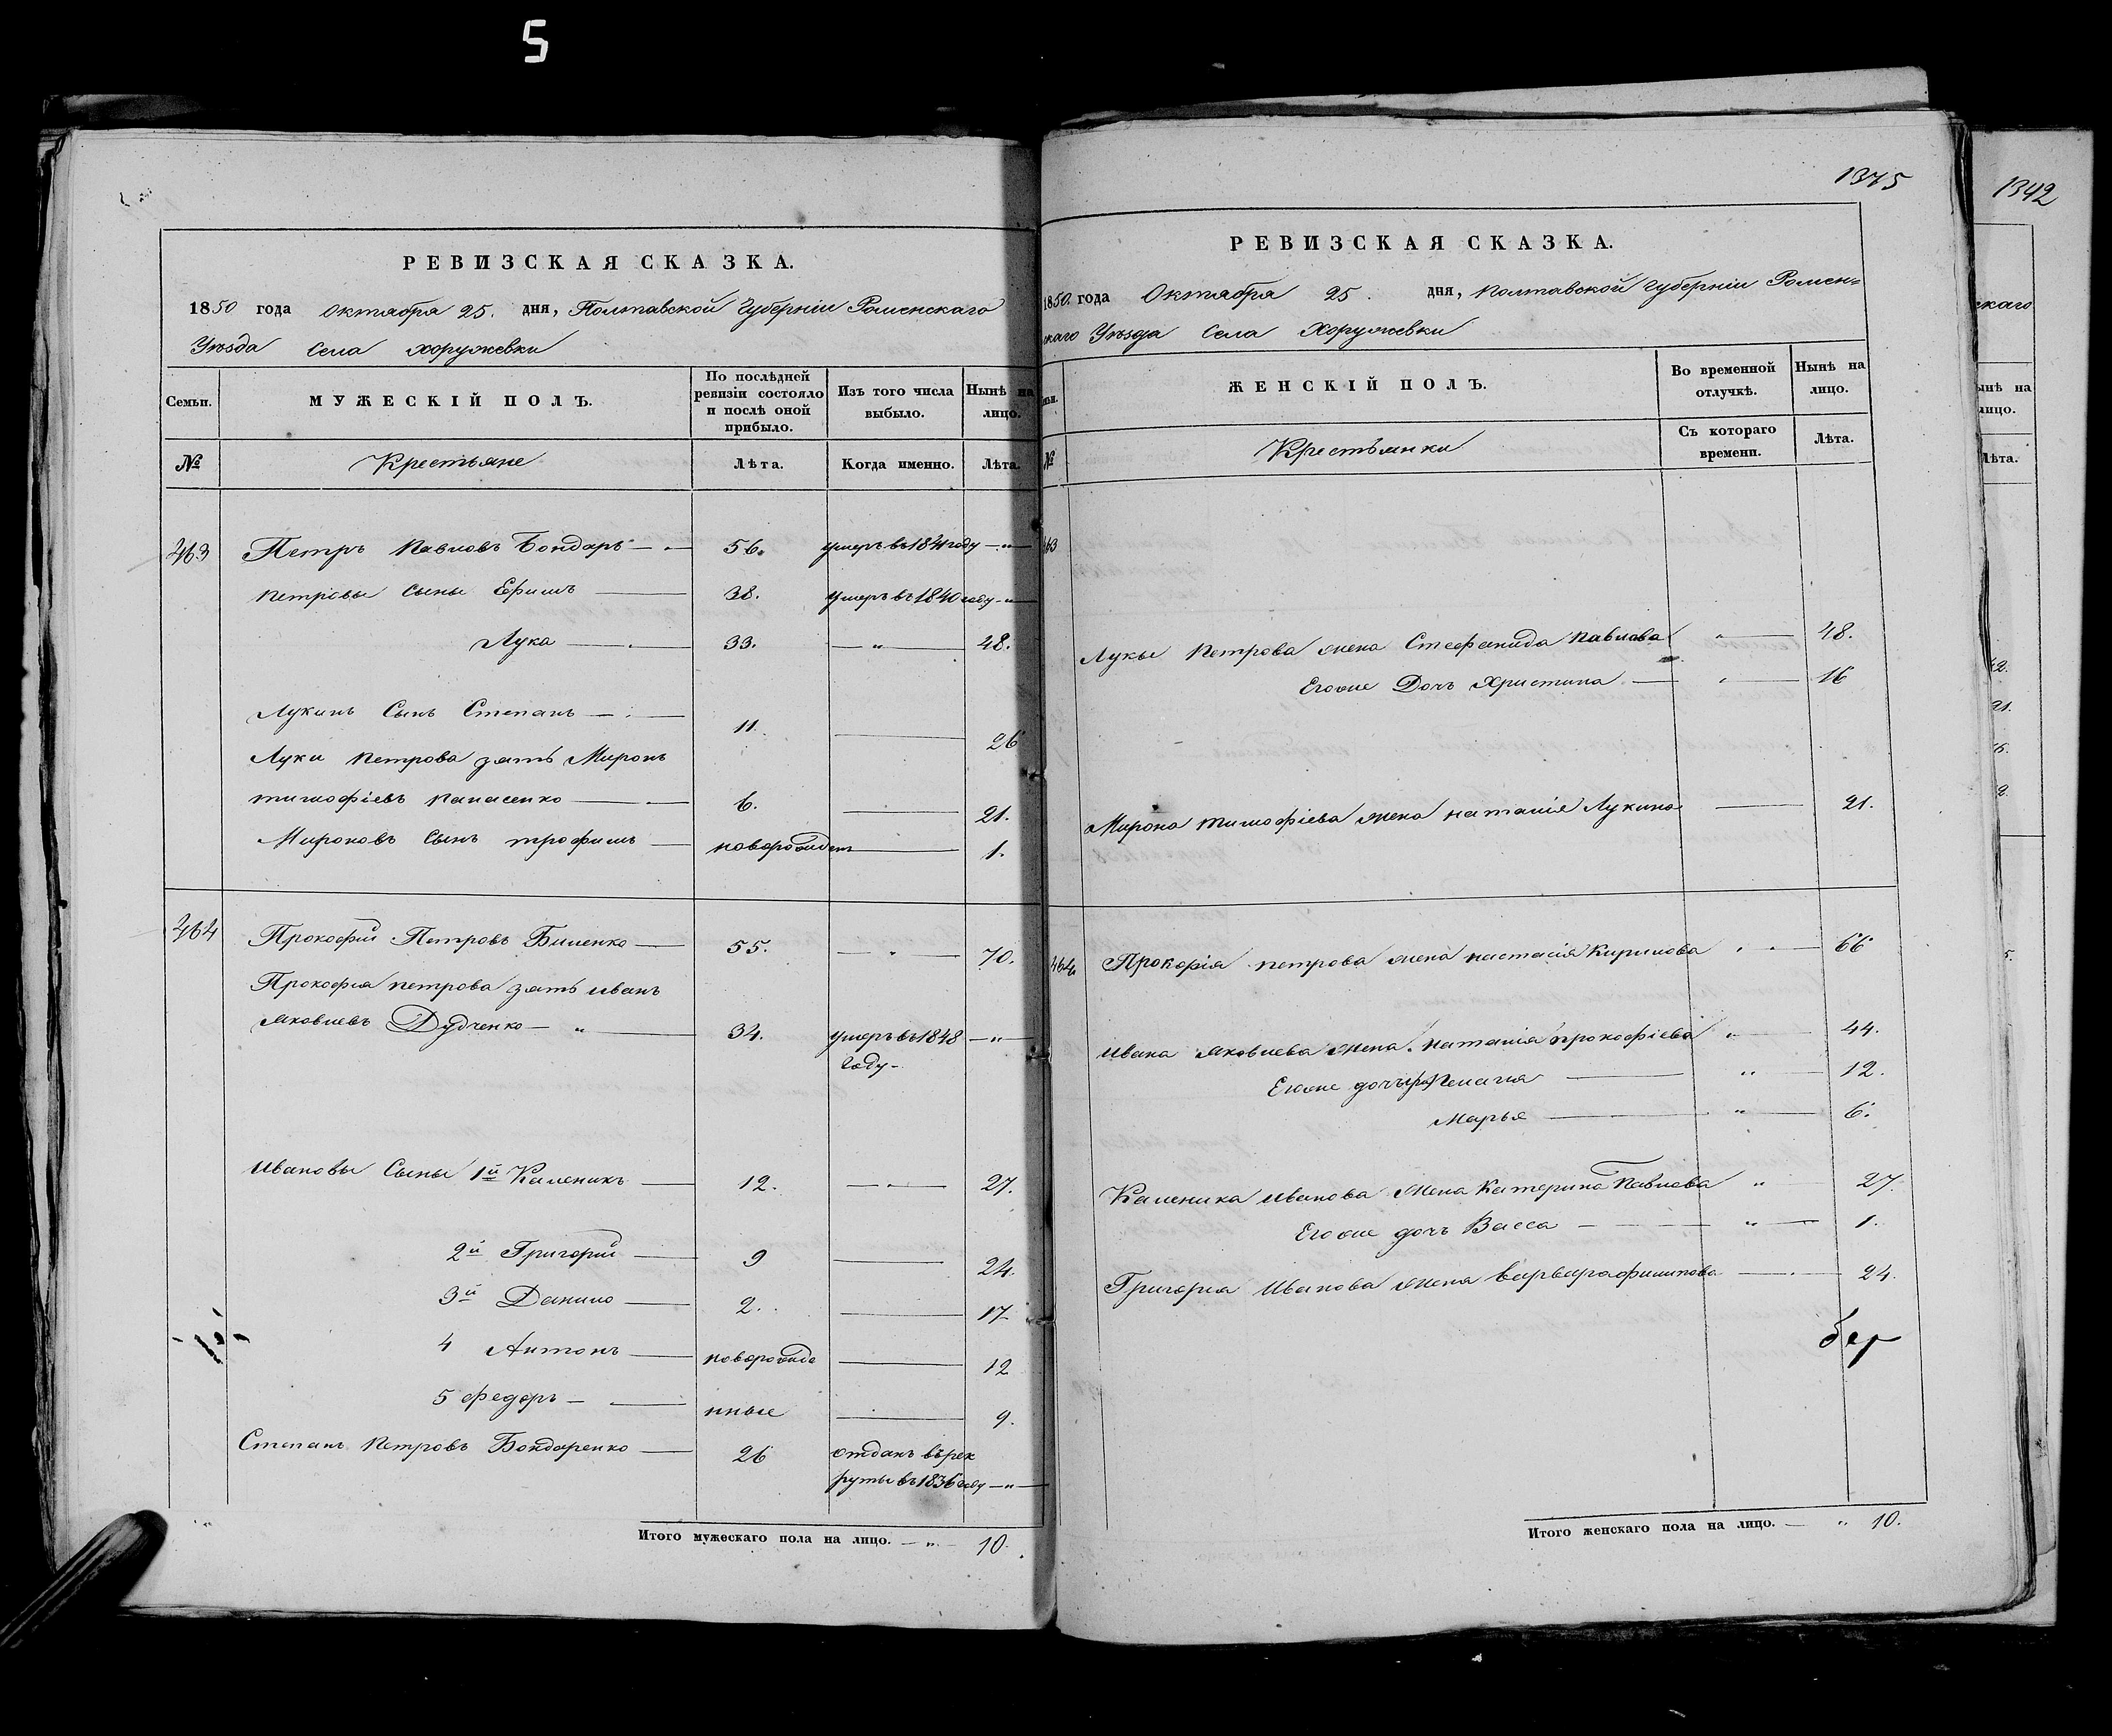 5
РЕВИЗСКАЯ СКАЗКА.
1850 года Октября 25. дня, Полтавской Губерніи Роменскаго
Уѣзда Села Хоружевки
Семьи.
МУЖЕСКІЙ ПОЛЪ.
По послѣдней ревизіи состояло и послѣ оной прибыло.
Изъ того числа выбыло.
Нынѣ на лицо.
№
Крестьяне
Лѣта.
Когда именно.
Лѣта.
463 Петръ Павловъ Бондарь 56. умеръ въ 1841 году
Петровы Сыны Ефимъ 38. умеръ въ 1840 году
Лука 33. " 48.
Лукинъ Сынъ Степанъ 11. 26
Луки Петрова зять Миронъ
Тимофіевъ Панасенко 6. 21.
Мироновъ Сынъ Трофимъ новорожден 1.
464 Прокофій Петровъ Биленко 55. " 70.
Прокофия Петрова зять Иванъ
Яковлевъ Дудченко " 34. умеръ въ 1848 "
году
Ивановы Сыны 1й Каленикъ 12. " 27.
2й Григорій 9 24.
3й Данило 2. 17
4 Антонъ новорожде 12
5 Федоръ нные 9.
Степанъ Петровъ Бондаренко 26 отданъ въ рек
руты въ 1836 году "
Итого мужескаго пола на лицо. " 10.
1375
РЕВИЗСКАЯ СКАЗКА.
1850. года Октября 25. дня, Полтавской Губерніи Ромен=
скаго Уѣзда Села Хоружевки
ЖЕНСКІЙ ПОЛЪ.
Во временной отлучкѣ.
Нынѣ на лицо.
№
Крестьянки
Съ котораго времени.
Лѣта.
463
Луки Петрова жена Стефанида Павлова " 48.
Егоже Дочь Христина " 16
Мирона Тимофіева жена Наталія Лукина 21.
464 Прокофія Петрова жена Настасія Кирилова " 66
Ивана Яковлева жена Наталія Прокофіева " 44.
Егоже дочери Пелагия " 12.
Марья " 6.
Каленика Иванова жена Катерина Павлова " 27.
Егоже дочь Васса " 1.
Григория Иванова жена Варвара Филипова 24.
Итого женскаго пола на лицо. " 10.
1342
скаго
ынѣ на
лицо.
Лѣта.
42.
21.